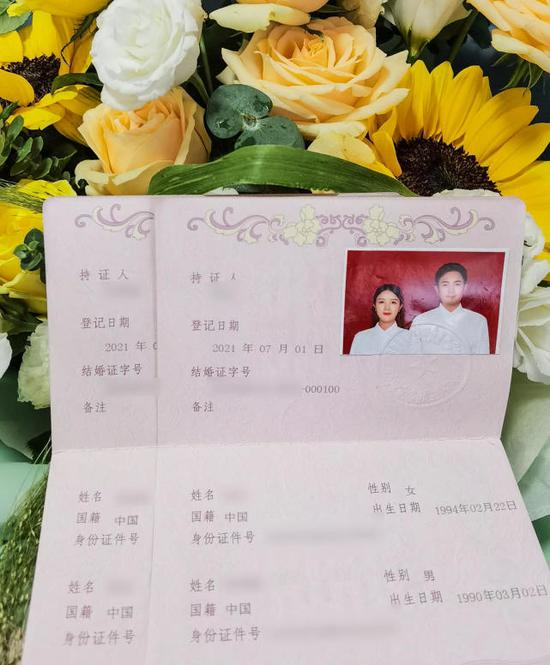 持证人 持证人
登记日期 登记日期
2021 年 2021 年 07 月 01 日
结婚证字号 结婚证字号
-000100
备注 备注
姓名 姓名 性别 女
国籍 中国 国籍 中国 出生日期 1994年02月22日
身份证件号 身份证件号
姓名 姓名 性别 男
国籍 中国 国籍 中国 出生日期 1990年03月02日
身份证件号 身份证件号